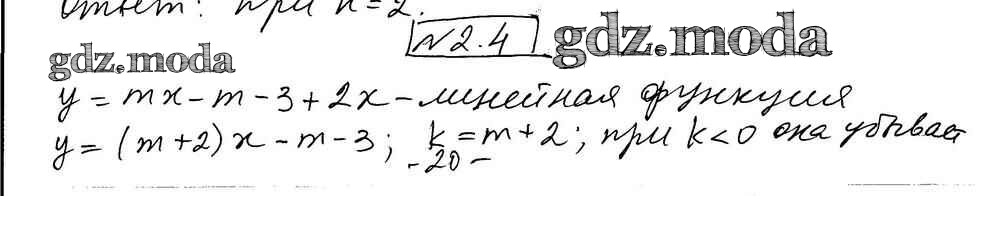 Ответ: при k=2.
№2.4 gdz.moda
gdz.moda
y = mx - m - 3 + 2x - линейная функция
y = (m+2)x - m - 3; k = m+2; при k<0 она убывает
- 20 -